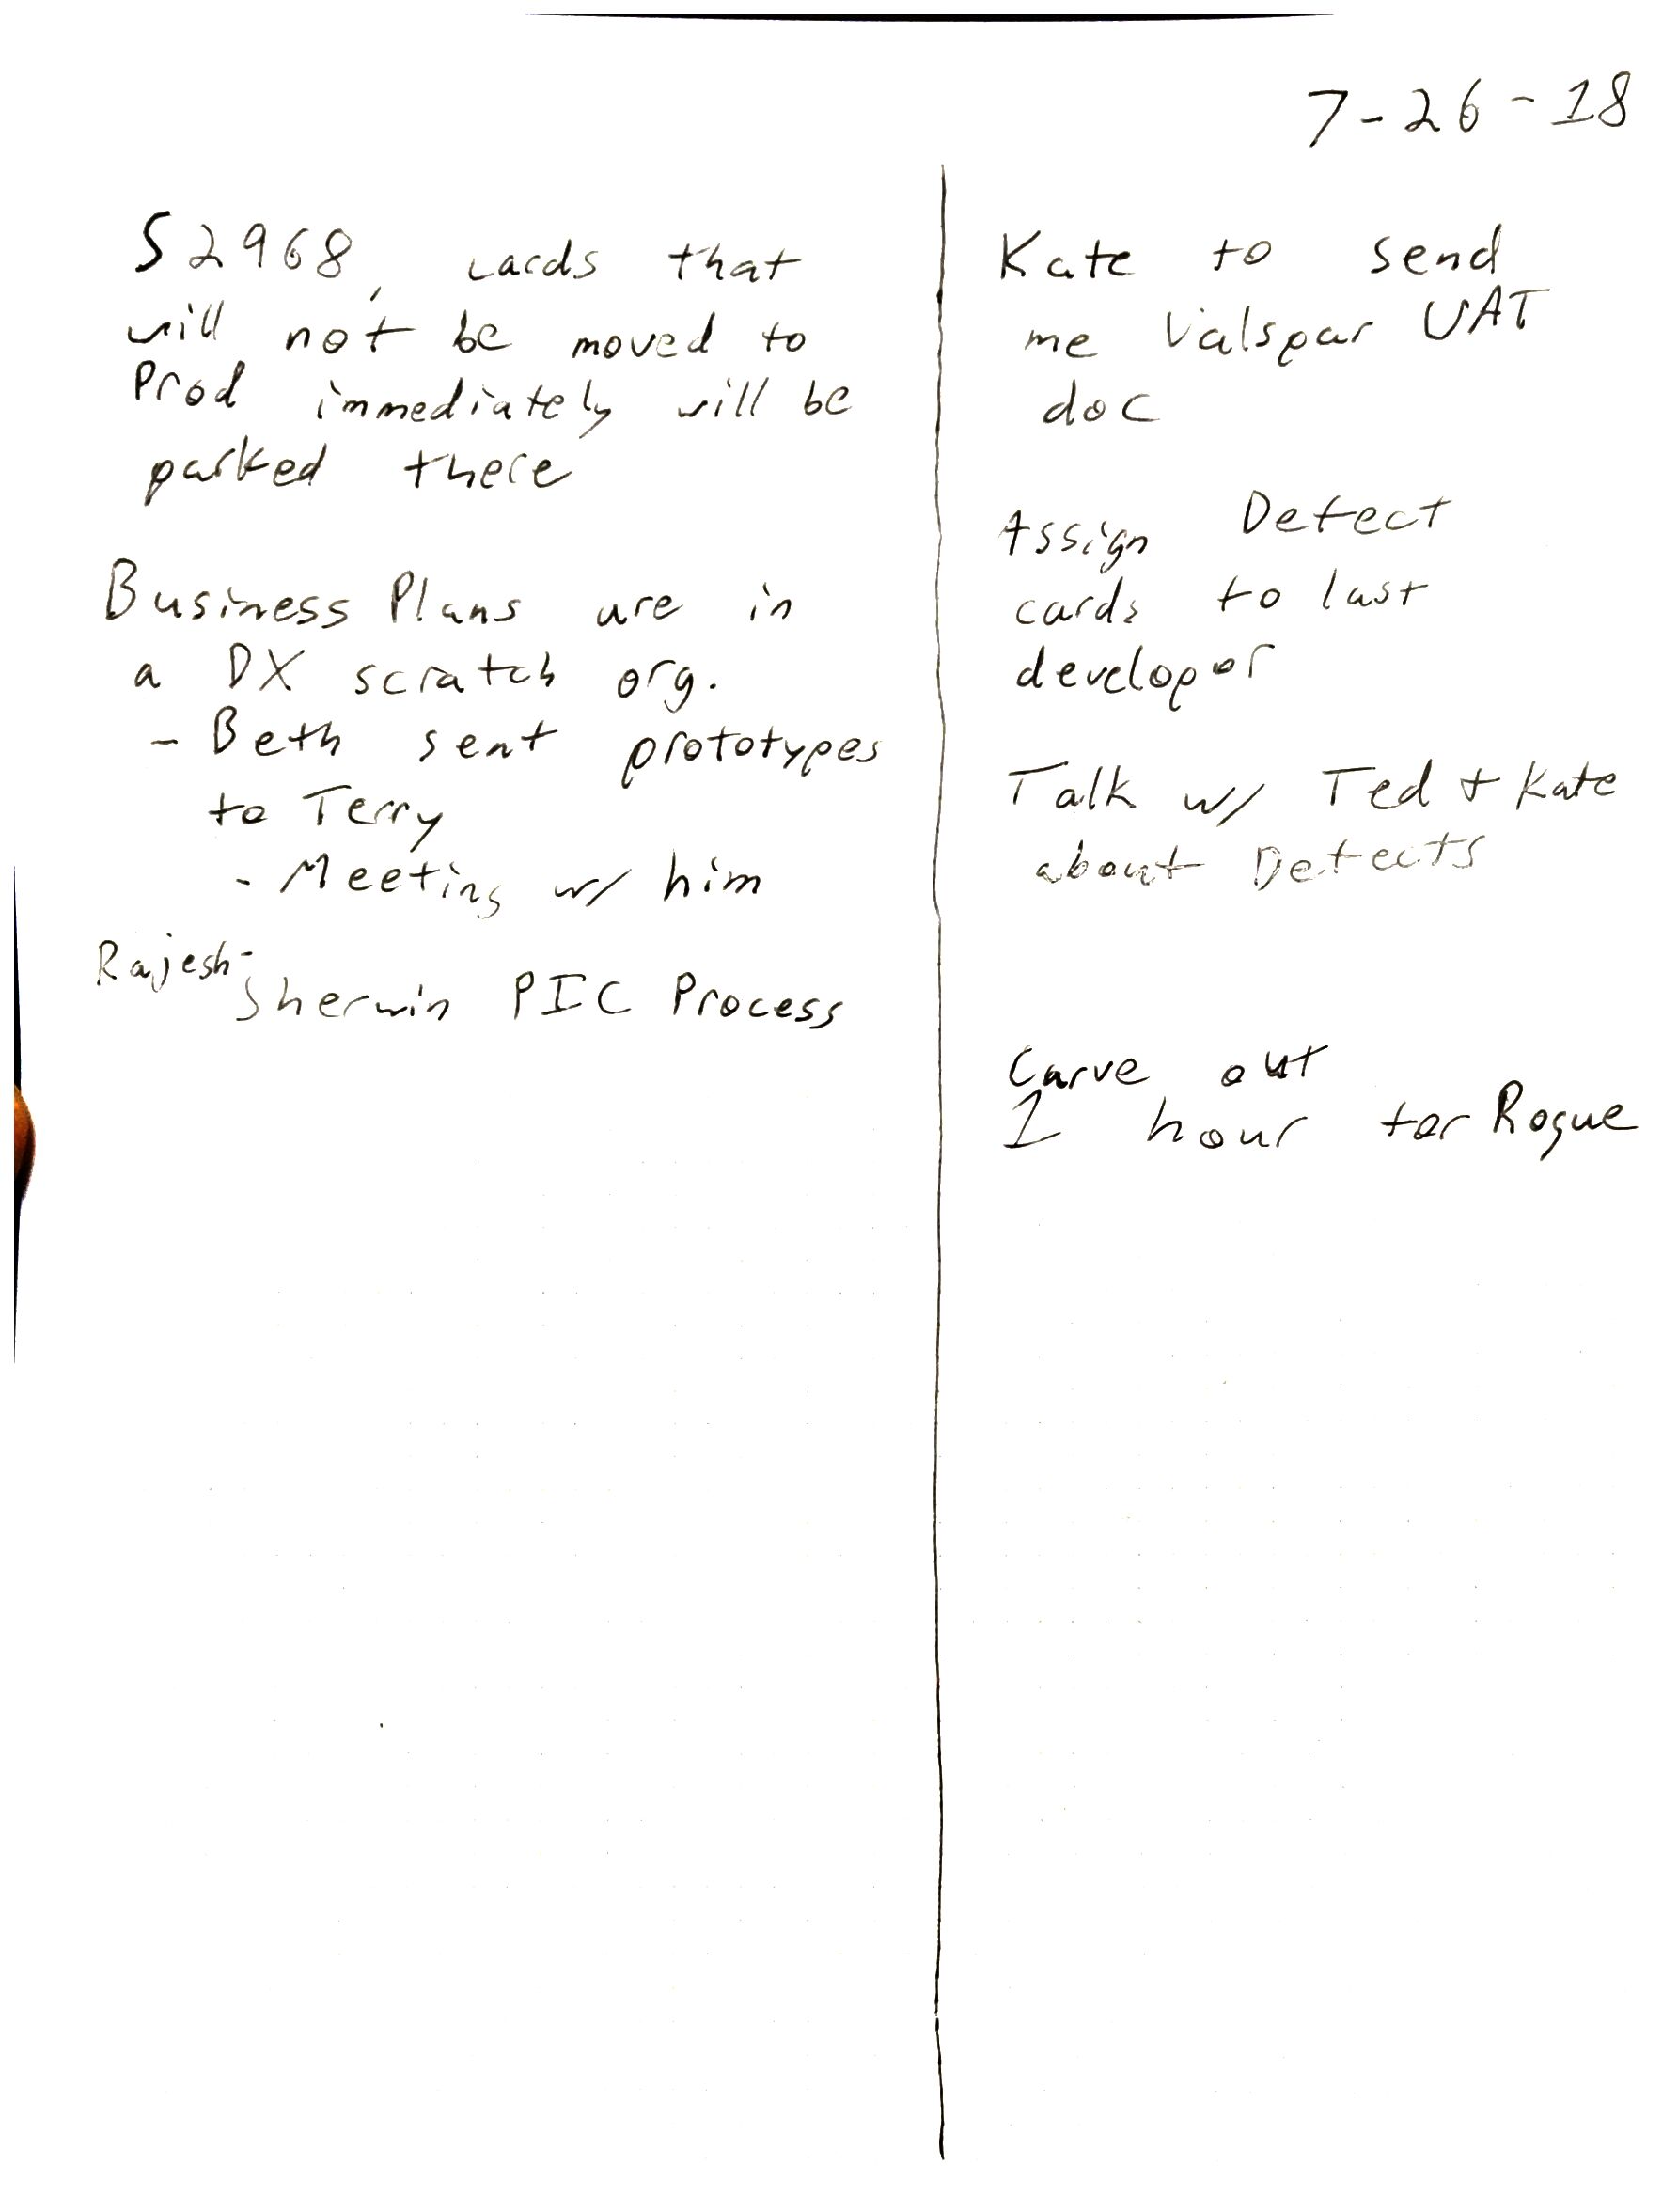 7-26-18
S2968, cards that
will not be moved to
Prod immediately will be
parked there
Business Plans are in
a DX scratch org.
- Beth sent prototypes
to Terry
- Meeting w/ him
Rajesh-
Sherwin PIC Process
Kate to send
me Valspar UAT
doc
Assign Defect
cards to last
developer
Talk w/ Ted + Kate
about Defects
Carve out
1 hour for Rogue